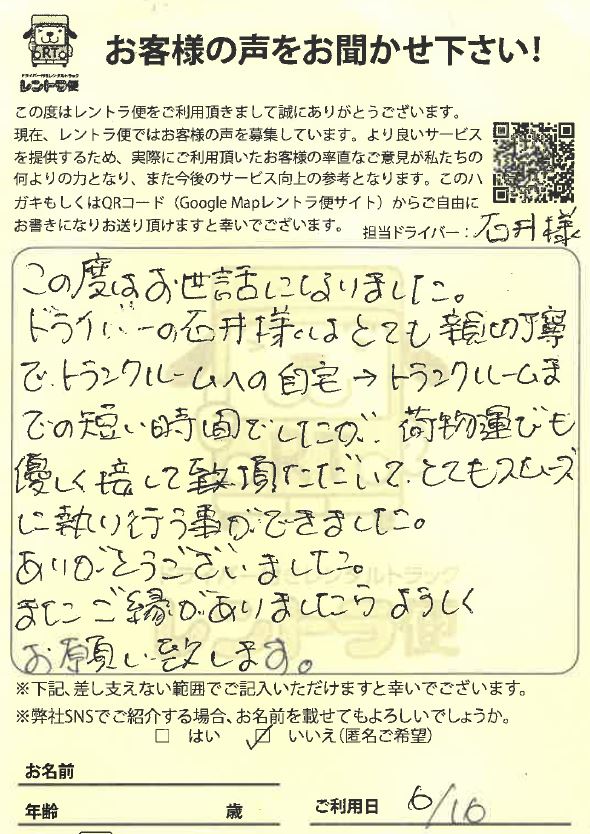 お客様の声をお聞かせ下さい!
RT
ドライバー付きレンタルトラック
レントラ便
この度はレントラ便をご利用頂きまして誠にありがとうございます。
現在、レントラ便ではお客様の声を募集しています。より良いサービス
を提供するため、実際にご利用頂いたお客様の率直なご意見が私たちの
何よりの力となり、また今後のサービス向上の参考となります。このハ
ガキもしくはQRコード（Google Mapレントラ便サイト）からご自由に
お書きになりお送り頂けますと幸いでございます。
担当ドライバー：石井様
この度はお世話になりました。
ドライバーの石井様はとても親切丁寧
で、トランクルームへの自宅→トランクルームま
での短い時間でしたが、荷物運びも
優しく接して致頂ただいて、とてもスムーズ
に執り行う事ができました。
ありがとうございました。
またご縁がありましたらよろしく
お願い致します。
ドライバー付きレンタルトラック
レントラ便
※下記、差し支えない範囲でご記入いただけますと幸いでございます。
※弊社SNSでご紹介する場合、お名前を載せてもよろしいでしょうか。
□ はい ☑ いいえ（匿名ご希望）
お名前
年齢 歳 ご利用日 6/10